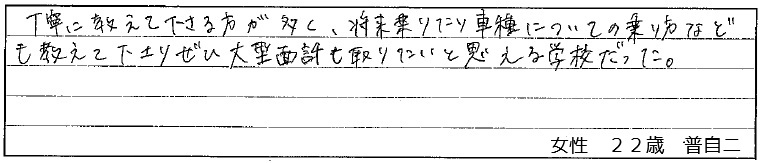 丁寧に教えて下さる方が多く、将来乗りたい車種についての乗り方など
も教えて下さりぜひ大型面許も取りたいと思える学校だった。
女性 22歳 普自二